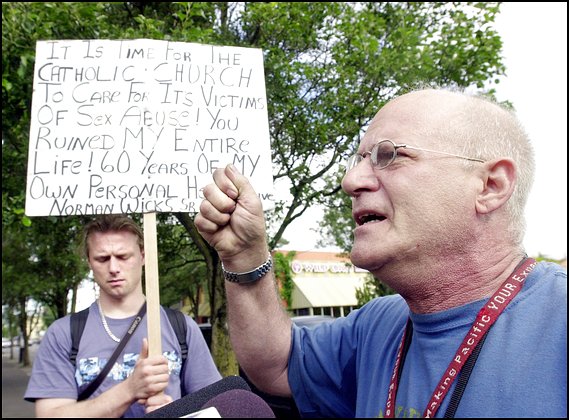 IT IS TIME FOR THE
CATHOLIC CHURCH
TO CARE FOR ITS VICTIMS
OF SEX ABUSE! YOU
RUINED MY ENTIRE
LIFE! 60 YEARS OF MY
OWN PERSONAL
NORMAN WICKS SR
Making Pacific YOUR E